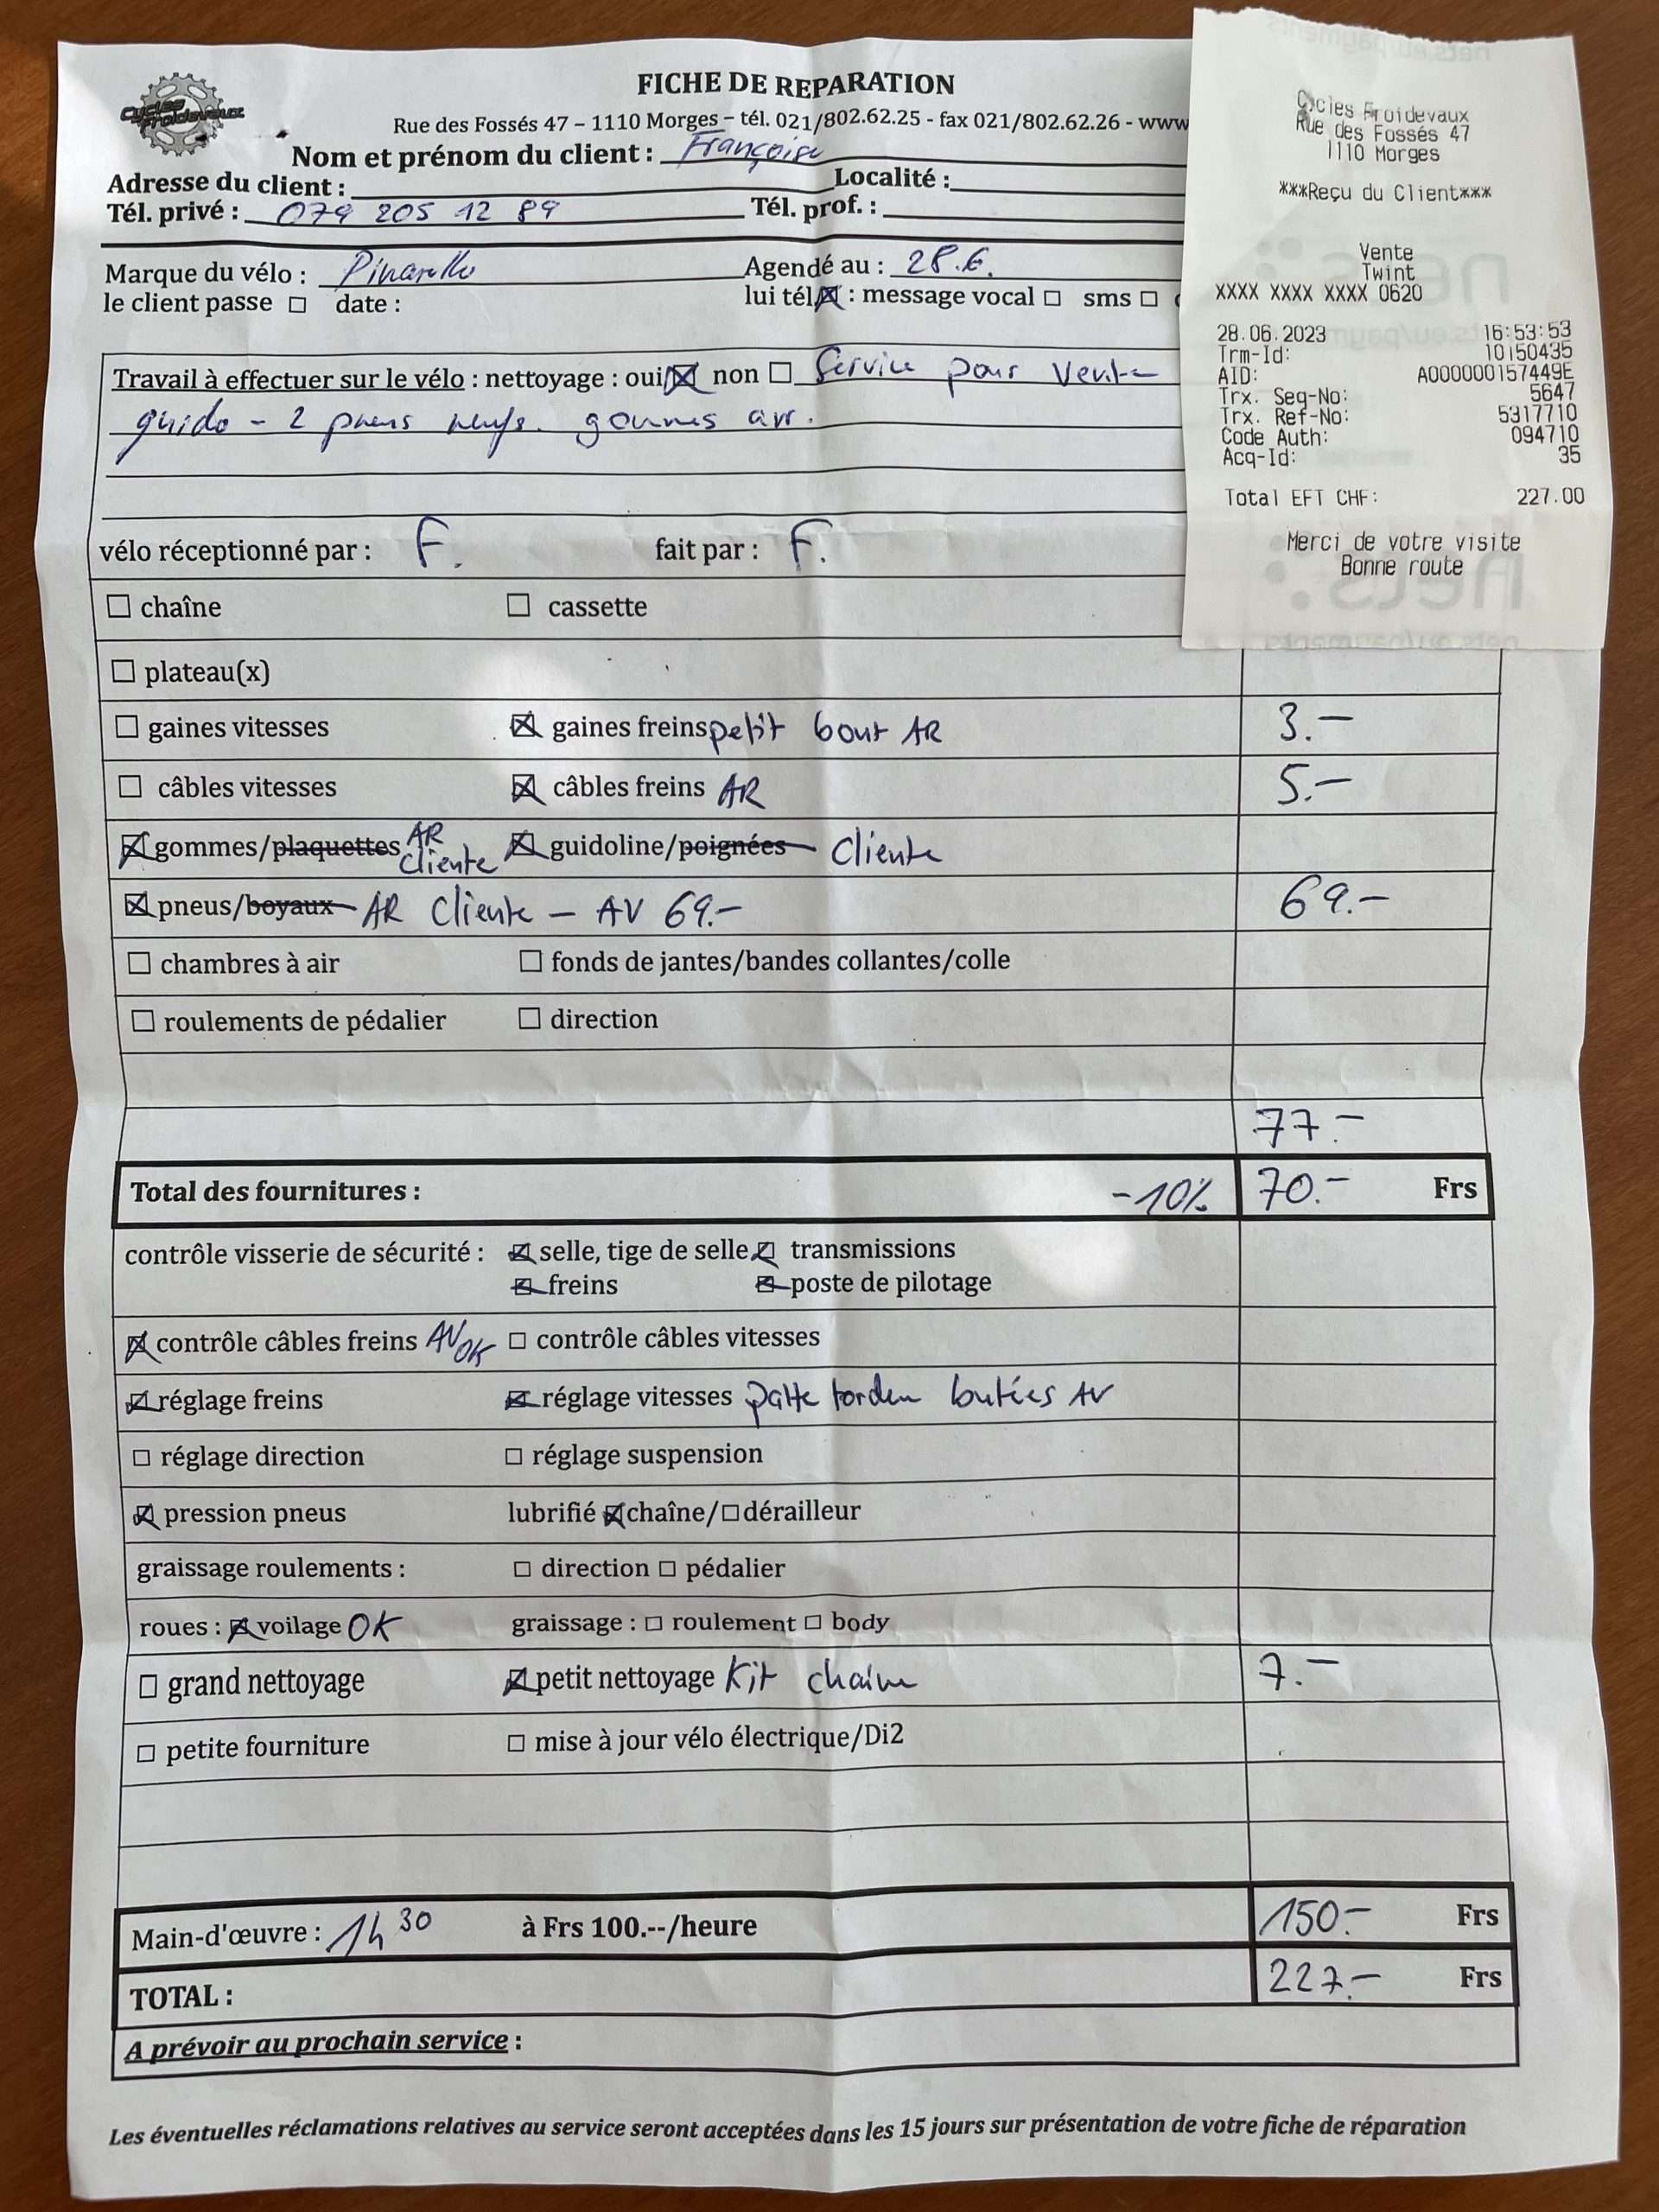 Cycles Froidevaux
FICHE DE REPARATION
Rue des Fossés 47 – 1110 Morges – tél. 021/802.62.25 - fax 021/802.62.26 - www
Nom et prénom du client : Françoise
Adresse du client : Localité :
Tél. privé : 079 205 12 89 Tél. prof. :
Marque du vélo : Pinarello Agendé au : 28.6.
le client passe ☐ date : lui tél ☒ : message vocal ☐ sms ☐
Travail à effectuer sur le vélo : nettoyage : oui ☒ non ☐ Service pour Vente
guido - 2 pneus neufs. gommes arr.
vélo réceptionné par : F. fait par : F.
☐ chaîne ☐ cassette
☐ plateau(x)
☐ gaines vitesses ☒ gaines freins petit bout AR 3.-
☐ câbles vitesses ☒ câbles freins AR 5.-
☒ gommes/plaquettes AR cliente ☒ guidoline/poignées cliente
☒ pneus/boyaux AR Cliente - AV 69.- 69.-
☐ chambres à air ☐ fonds de jantes/bandes collantes/colle
☐ roulements de pédalier ☐ direction
77.-
Total des fournitures : -10% 70.- Frs
contrôle visserie de sécurité : ☒ selle, tige de selle ☒ transmissions
☒ freins ☒ poste de pilotage
☒ contrôle câbles freins AV OK ☐ contrôle câbles vitesses
☒ réglage freins ☒ réglage vitesses patte tordue butées AV
☐ réglage direction ☐ réglage suspension
☒ pression pneus lubrifié ☒ chaîne/☐ dérailleur
graissage roulements : ☐ direction ☐ pédalier
roues : ☒ voilage OK graissage : ☐ roulement ☐ body
☐ grand nettoyage ☒ petit nettoyage Kit chaine 7.-
☐ petite fourniture ☐ mise à jour vélo électrique/Di2
Main-d'œuvre : 1h30 à Frs 100.--/heure 150.- Frs
TOTAL : 227.- Frs
A prévoir au prochain service :
Les éventuelles réclamations relatives au service seront acceptées dans les 15 jours sur présentation de votre fiche de réparation
Cycles Froidevaux
Rue des Fossés 47
1110 Morges
***Reçu du Client***
Vente
Twint
XXXX XXXX XXXX 0620
28.06.2023 16:53:53
Trm-Id: 10150435
AID: A000000157449E
Trx. Seq-No: 5647
Trx. Ref-No: 5317710
Code Auth: 094710
Acq-Id: 35
Total EFT CHF: 227.00
Merci de votre visite
Bonne route